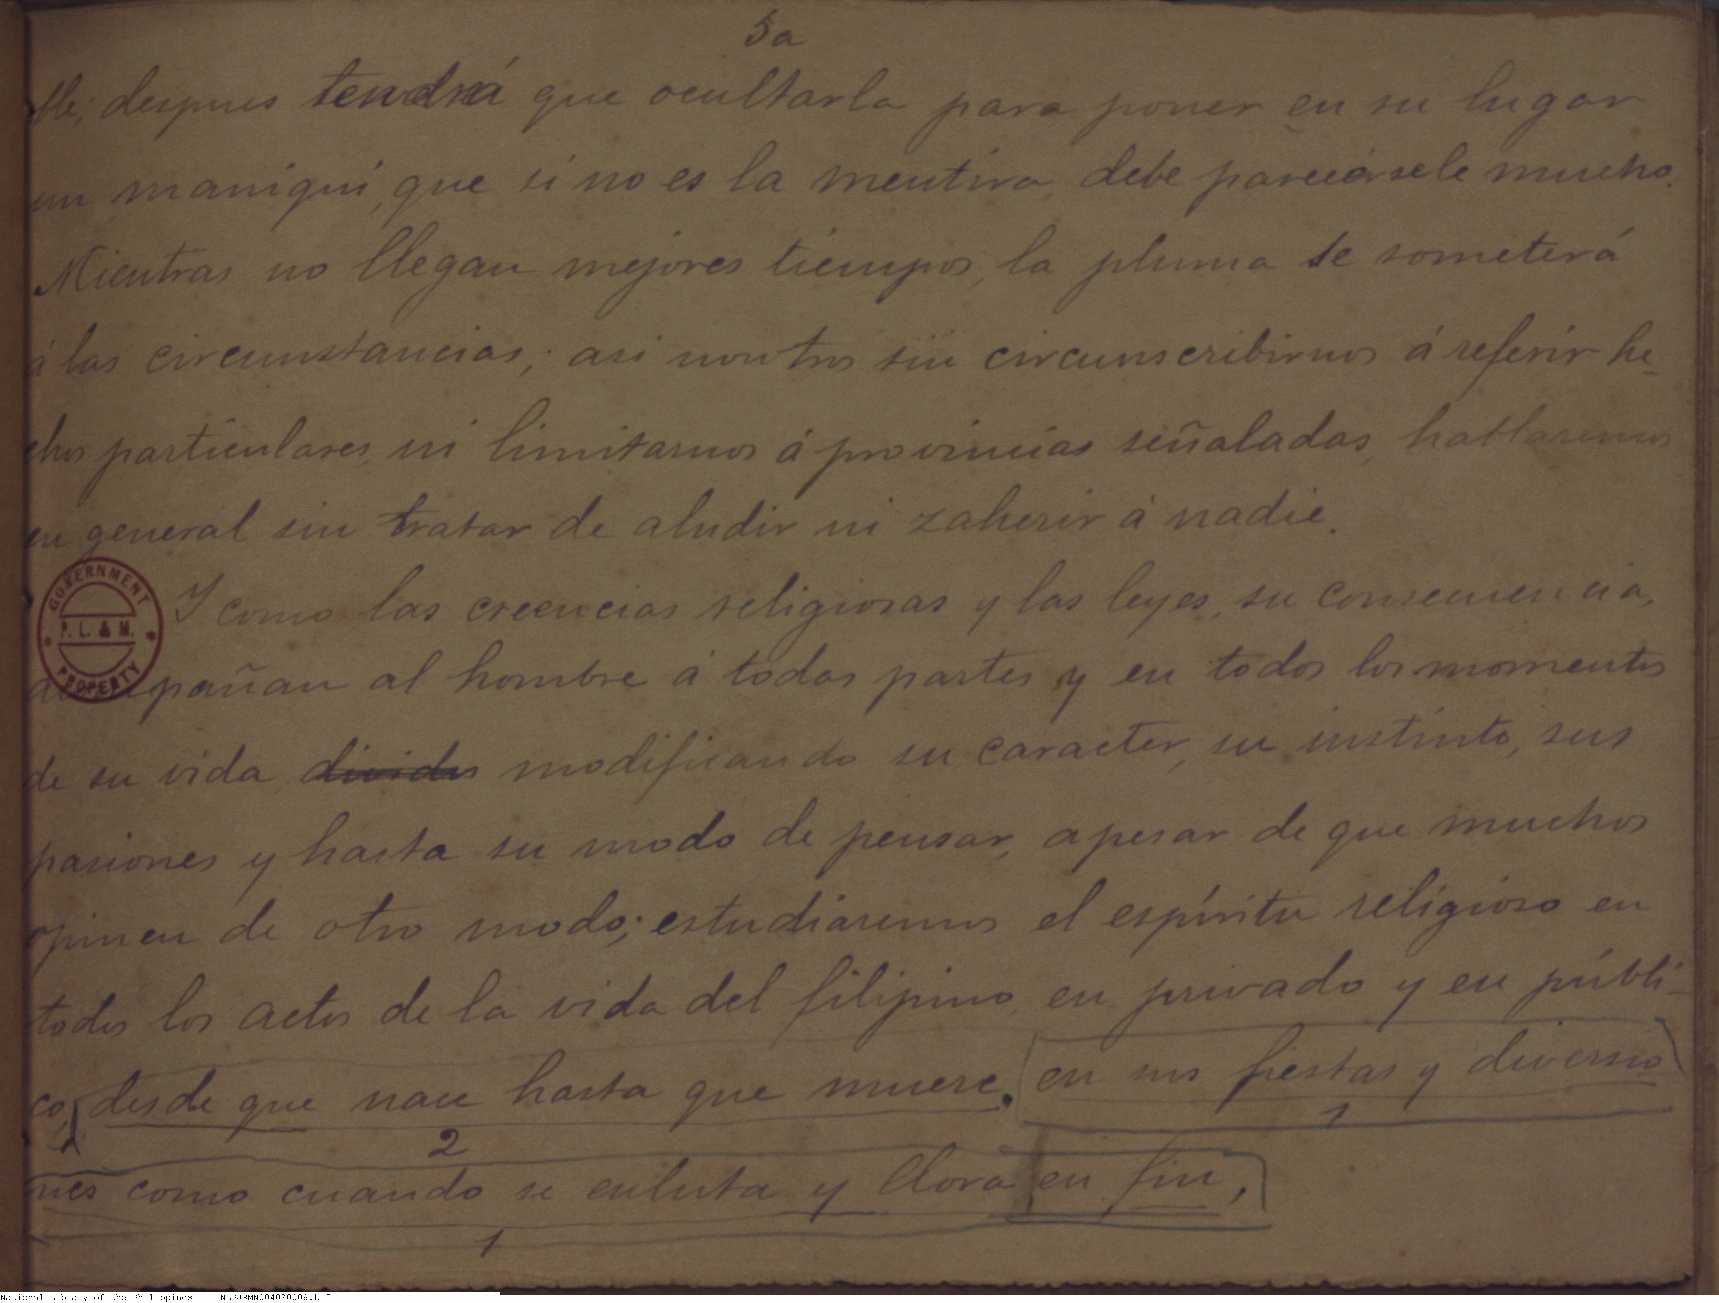 5a
ble; despues tendrá que ocultarla para poner en su lugar
un maniquí, que si no es la mentira, debe parecérsele mucho.
Mientras no llegan mejores tiempos, la pluma se someterá
á las circunstancias; asi nosotros sin circunscribirnos á referir he-
chos particulares, ni limitarnos á provincias señaladas, hablaremos
en general sin tratar de aludir ni zaherir á nadie.
Y como las creencias religiosas y las leyes, su consecuencia,
acompañan al hombre á todas partes y en todos los momentos
de su vida modificando su caracter, su instinto, sus
pasiones y hasta su modo de pensar, apesar de que muchos
opinen de otro modo; estudiaremos el espíritu religioso en
todos los actos de la vida del filipino, en privado y en públi-
co, desde que nace hasta que muere. en sus fiestas y diversio
2 1
nes como cuando se enluta y llora en fin,
1
GOVERNMENT
P. L. & M.
PROPERTY
National Library of the Philippines